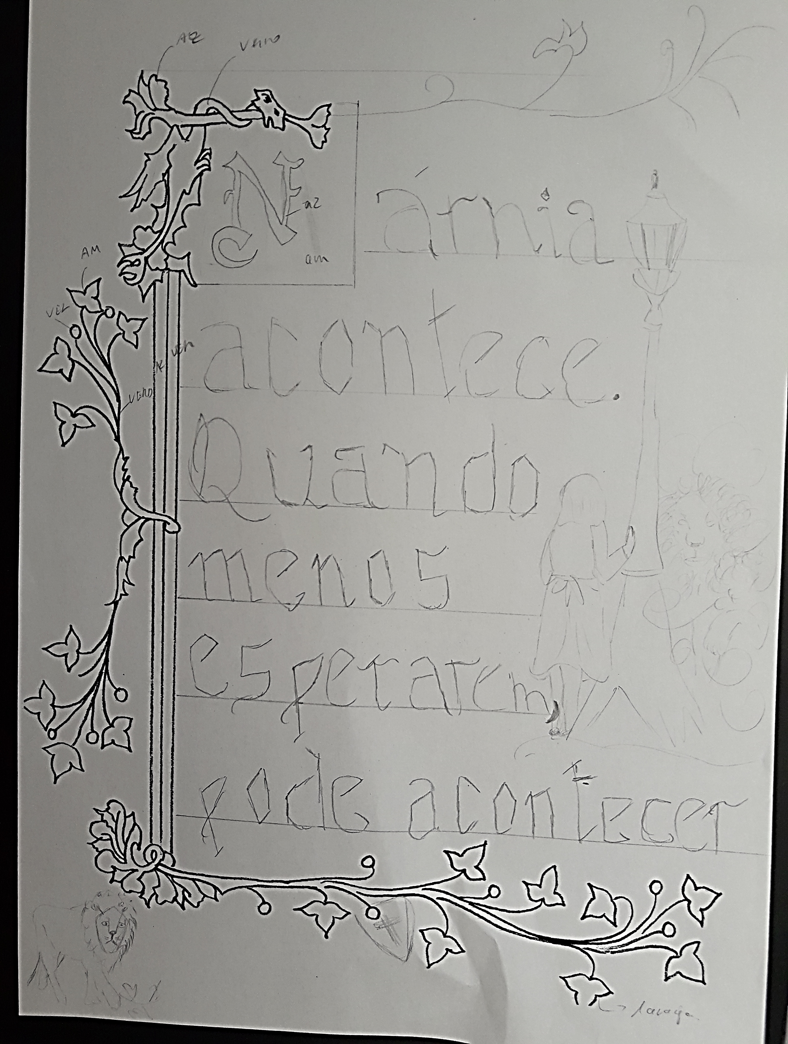 AZ
VERD
Nárnia
az
am
AM
VER
acontece.
Quando
menos
esperarem,
pode acontecer